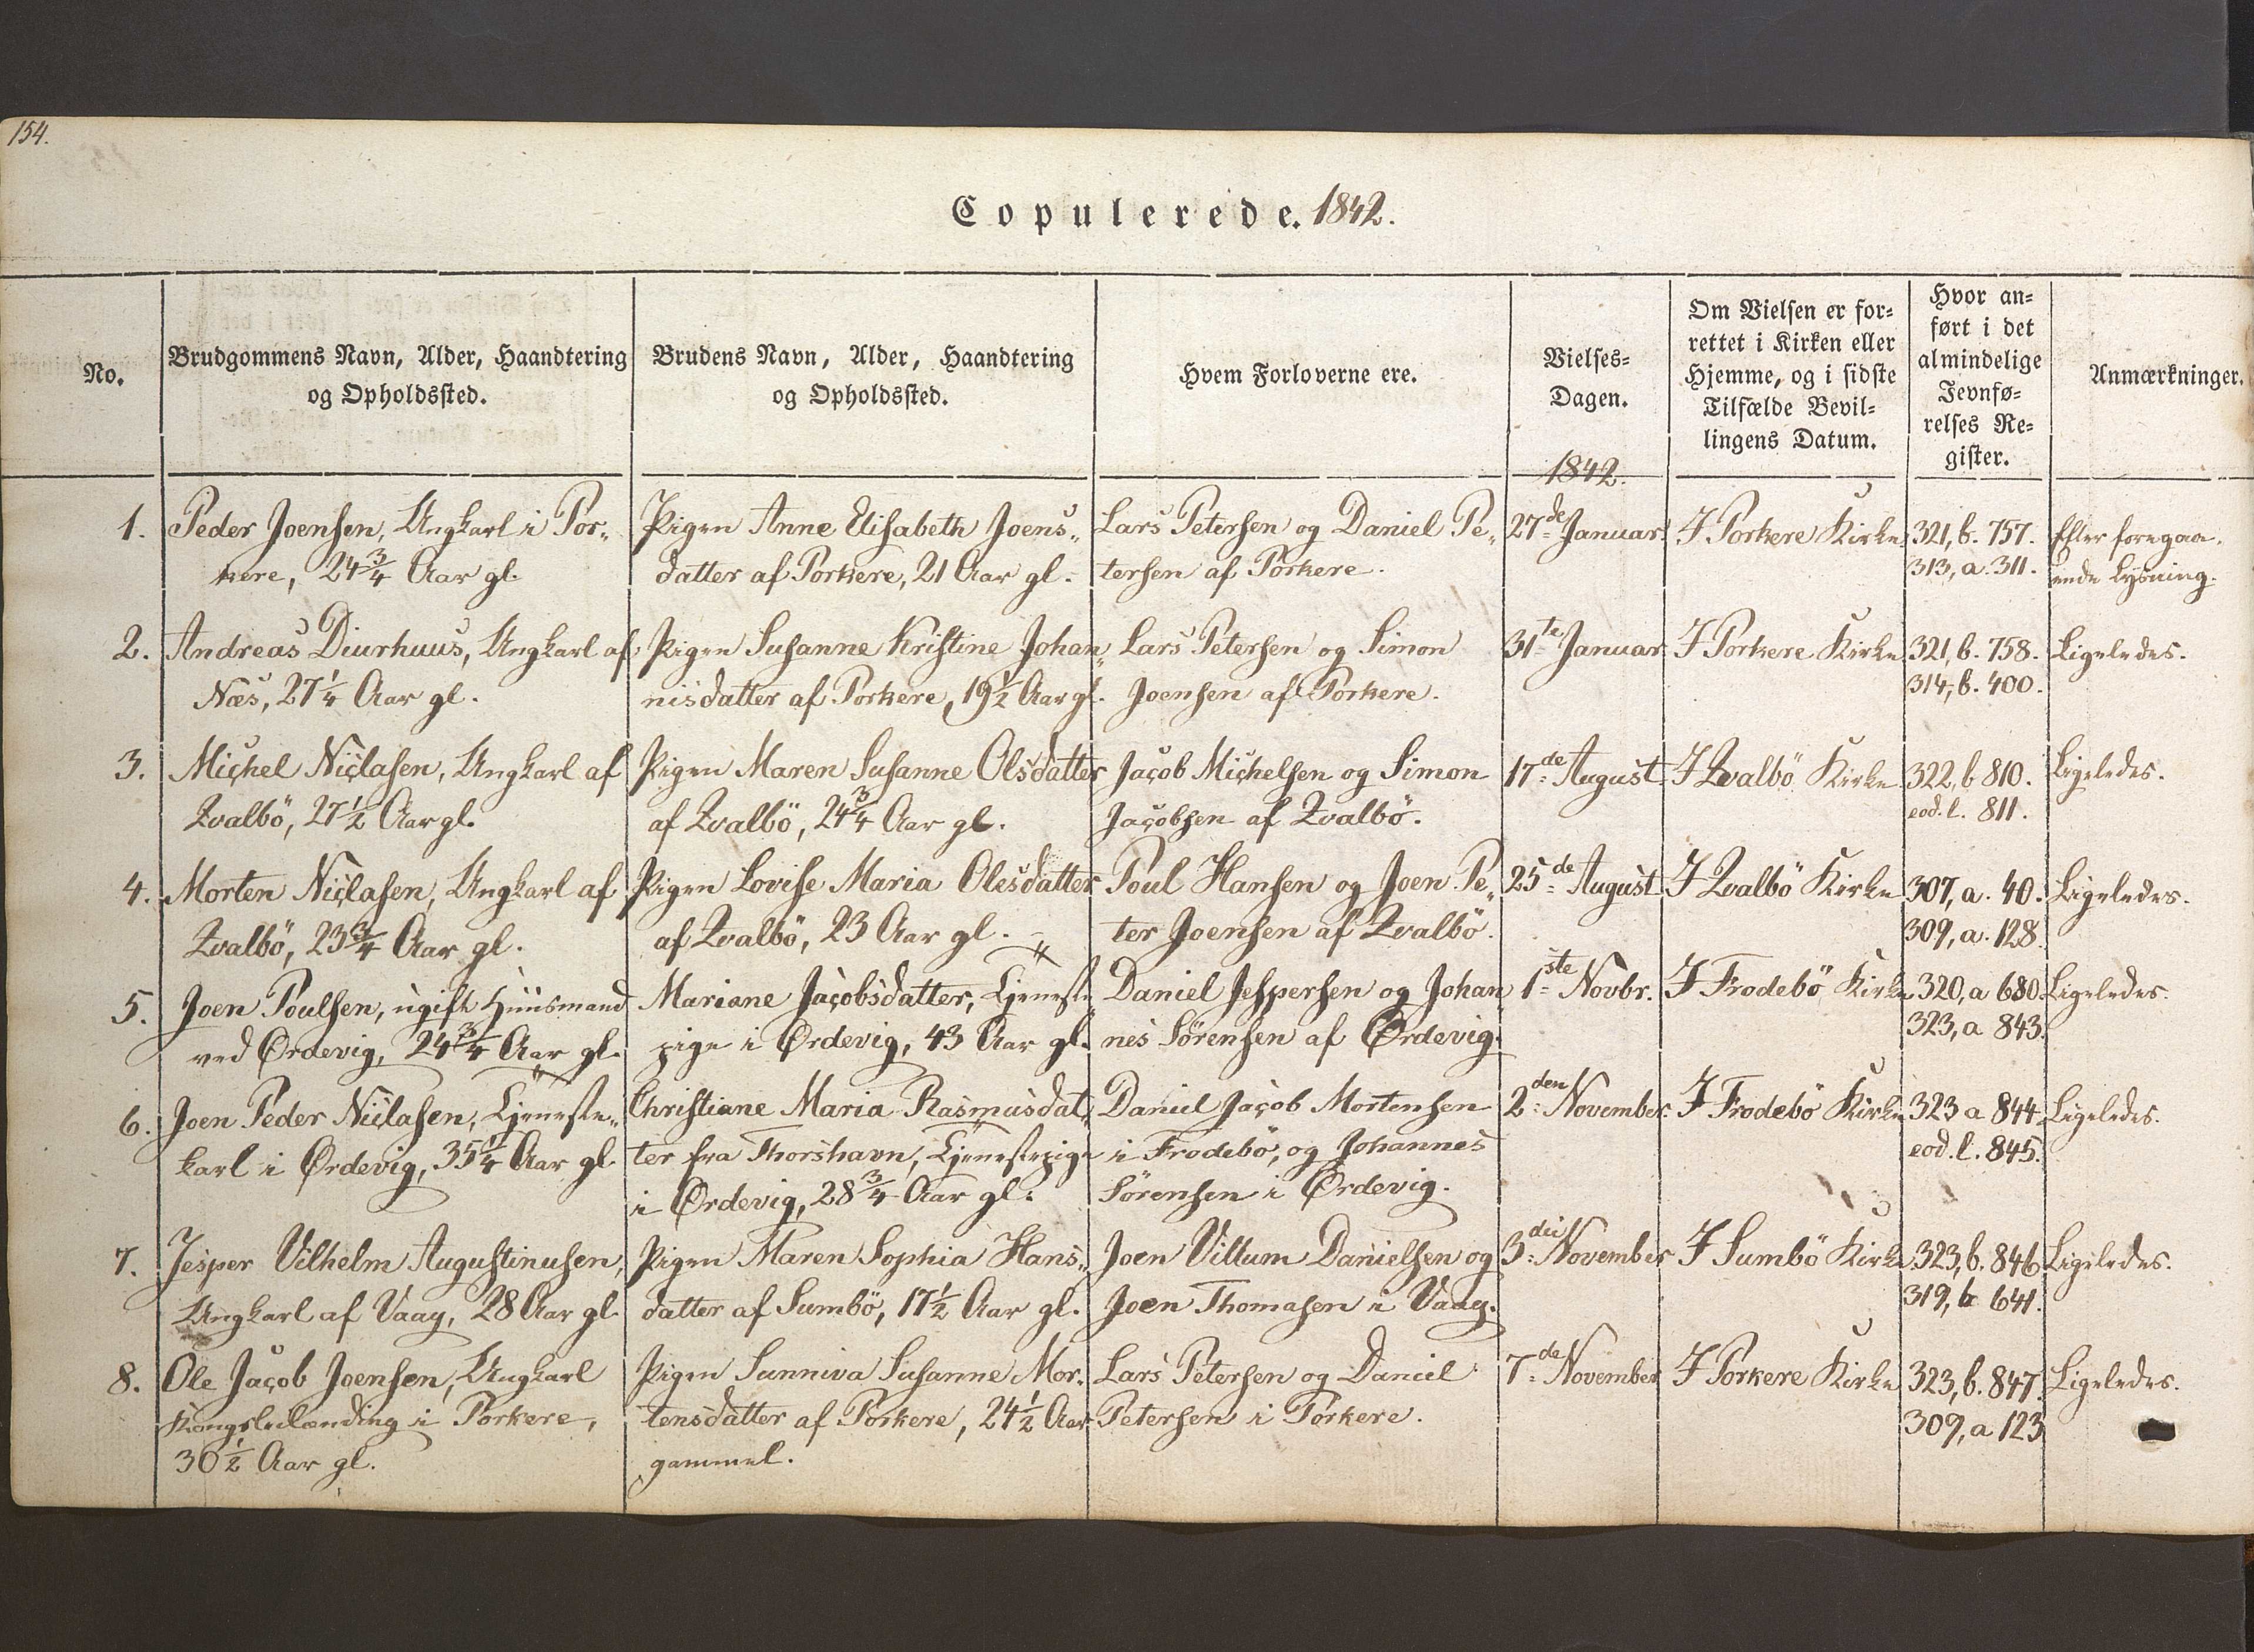 154.
Copulerede. 1842.
No.
Brudgommens Navn, Alder, Haandtering
og Opholdssted.
Brudens Navn, Alder, Haandtering
og Opholdssted.
Hvem Forloverne ere.
Vielses-
Dagen.
1842.
Om Vielsen er for-
rettet i Kirken eller
Hjemme, og i sidste
Tilfælde Bevil-
lingens Datum.
Hvor an-
ført i det
almindelige
Jevnfø-
relses Re-
gister.
Anmærkninger.
1.
Peder Joensen, Ungkarl i Por„
kere, 24 3/4 Aar gl.
Pigen Anne Elisabeth Joens„
datter af Porkere, 21 Aar gl.
Lars Petersen og Daniel Pe„
tersen af Porkere.
27de Januar
I Porkere Kirke
321, b. 757.
313, a. 311.
Efter foregaa„
ende Lysning.
2.
Andreas Diurhuus, Ungkarl af
Næs, 27 1/4 Aar gl.
Pigen Susanne Kristine Johan„
nisdatter af Porkere, 19 1/2 Aar gl.
Lars Petersen og Simon
Joensen af Porkere.
31te Januar
I Porkere Kirke
321, b. 758.
314, b. 400.
Ligeledes.
3.
Michel Niclasen, Ungkarl af
Qvalbö, 27 1/2 Aar gl.
Pigen Maren Susanne Olsdatter
af Qvalbö, 24 3/4 Aar gl.
Jacob Michelsen og Simon
Jacobsen af Qvalbö.
17de August
I Qvalbö Kirke
322, b 810.
eod. l. 811.
Ligeledes.
4.
Morten Niclasen, Ungkarl af
Qvalbö, 23 3/4 Aar gl.
Pigen Lovise Maria Olesdatter
af Qvalbö, 23 Aar gl.
Poul Hansen og Joen Pe„
ter Joensen af Qvalbö.
25de August
I Qvalbö Kirke
307, a. 40.
309, a. 128.
Ligeledes.
5.
Joen Poulsen, ugift Huusmand
ved Ørdevig, 24 3/4 Aar gl.
Mariane Jacobsdatter, Tjeneste„
pige i Ørdevig, 43 Aar gl.
Daniel Jespersen og Johan„
nes Sörensen af Ørdevig.
1ste Novbr.
I Frodebö Kirke
320, a 680.
323, a 843.
Ligeledes.
6.
Joen Peder Niclasen, Tjeneste„
karl i Ørdevig, 35 1/4 Aar gl.
Christiane Maria Rasmusdat„
ter fra Thorshavn, Tjenestepige
i Ørdevig, 28 3/4 Aar gl.
Daniel Jacob Mortensen
i Frodebö, og Johannes
Sörensen i Ørdevig.
2den November.
I Frodebö Kirke
323 a 844.
eod. l. 845.
Ligeledes.
7.
Jesper Vilhelm Augustinusen,
Ungkarl af Vaag, 28 Aar gl.
Pigen Maren Sophia Hans„
datter af Sumbö, 17 1/2 Aar gl.
Joen Villum Danielsen og
Joen Thomasen i Vaag.
3die November
I Sumbö Kirke
323, b. 846
319, b 641.
Ligeledes.
8.
Ole Jacob Joensen, Ungkarl
Kongsleilænding i Porkere,
30 1/2 Aar gl.
Pigen Sunniva Susanne Mor„
tensdatter af Porkere, 24 1/2 Aar
gammel.
Lars Petersen og Daniel
Petersen i Porkere.
7de November
I Porkere Kirke
323, b. 847.
309, a 123
Ligeledes.